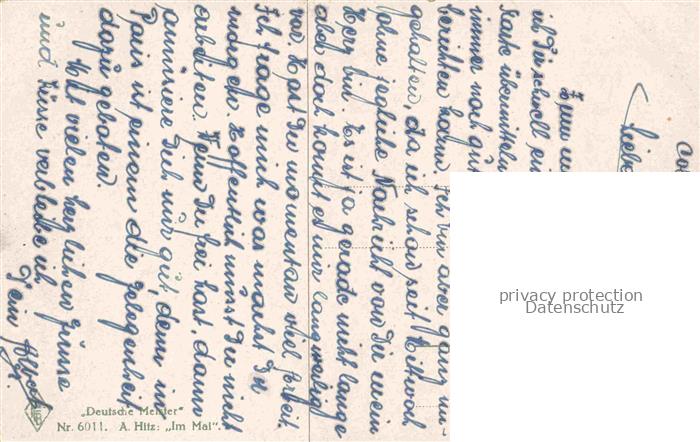 Liebe
Zum
ich Dir schnell ein
immer noch gut
berichten kann. Ich bin aber ganz un-
gehalten, da ich schon seit Mittwoch
ohne jegliche Nachricht von Dir mein
Herz bin. Es ist ja gerade nicht lange
aber doch kommt es mir langweilig
vor. Hast Du momentan viel Arbeit.
Ich frage mich was machst Du
morgen. Hoffentlich musst Du nicht
arbeiten. Wenn Du frei hast, dann
amüsiere Dich nur gut, denn in
Paris ist einem die Gelegenheit
dazu geboten.
Mit vielen herzlichen Grüsse
und Küsse verbleibe ich
Dein
„Deutsche Meister“
Nr. 6011. A. Hitz: „Im Mai“.
privacy protection
Datenschutz